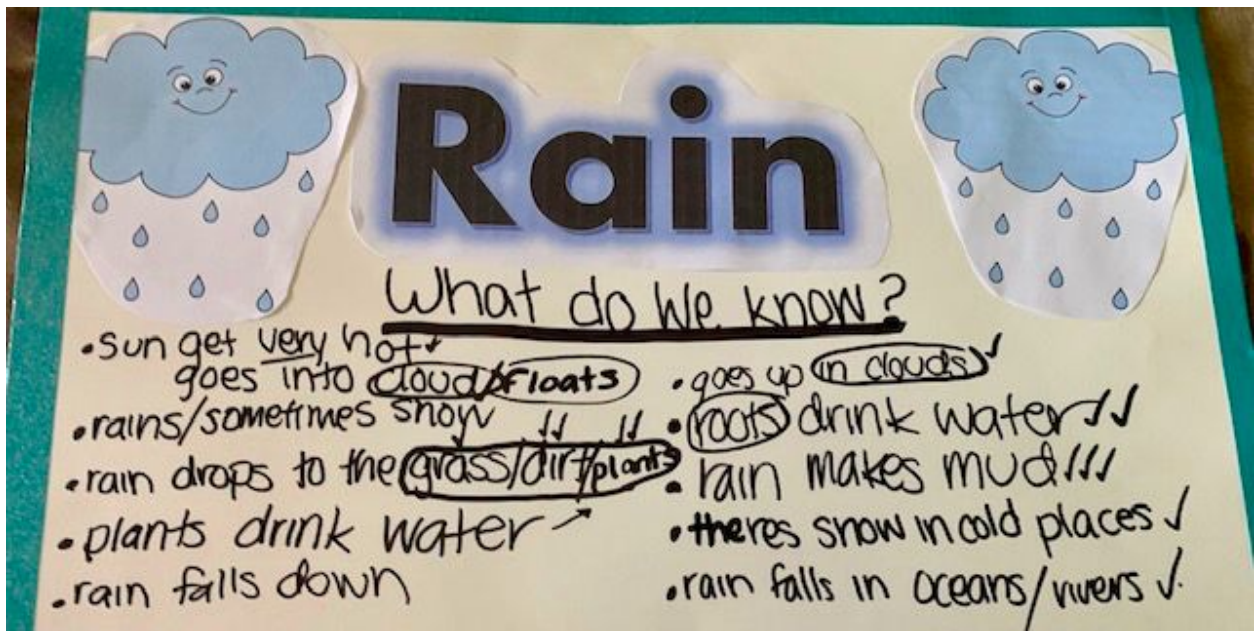 Rain
What do we know?
•sun get very hot ✓
goes into cloud/floats
•rains/sometimes snow
•rain drops to the grass/dirt/plants
•plants drink water
•rain falls down
•goes up in clouds ✓
•roots drink water ✓✓
•rain makes mud ✓✓✓
•theres snow in cold places ✓
•rain falls in oceans/rivers ✓